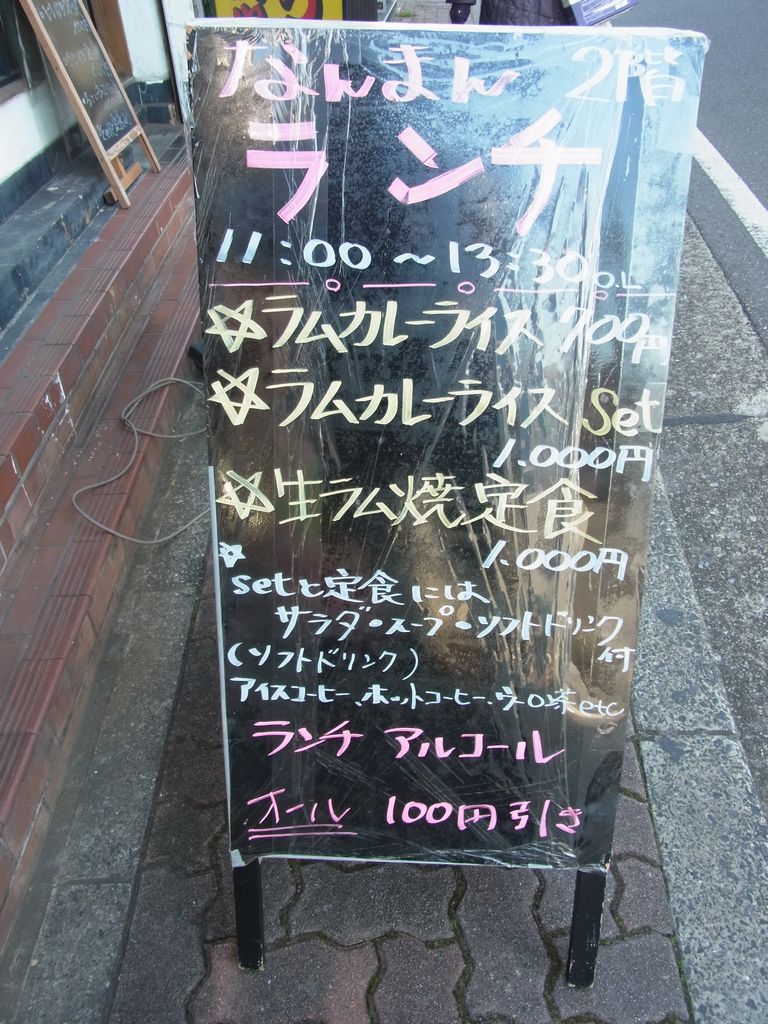 なんまん 2階
ランチ
11:00～13:30 O.L
☆ラムカレーライス 700円
☆ラムカレーライス Set
1.000円
☆生ラム焼定食
1.000円
☆
setと定食には
サラダ・スープ・ソフトドリンク
付
(ソフトドリンク)
アイスコーヒー、ホットコーヒー、ウーロ茶etc
ランチ アルコール
オール 100円引き